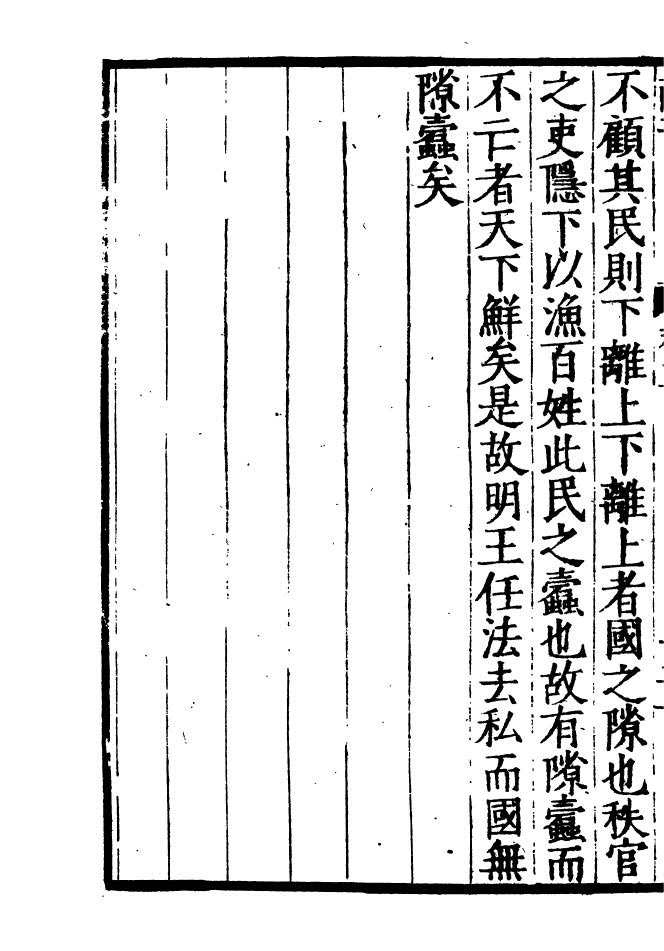 不顧其民則下離上下離上者國之隙也秩官
之吏隱下以漁百姓此民之蠹也故有隙蠹而
不亡者天下鮮矣是故明王任法去私而國無
隙蠹矣